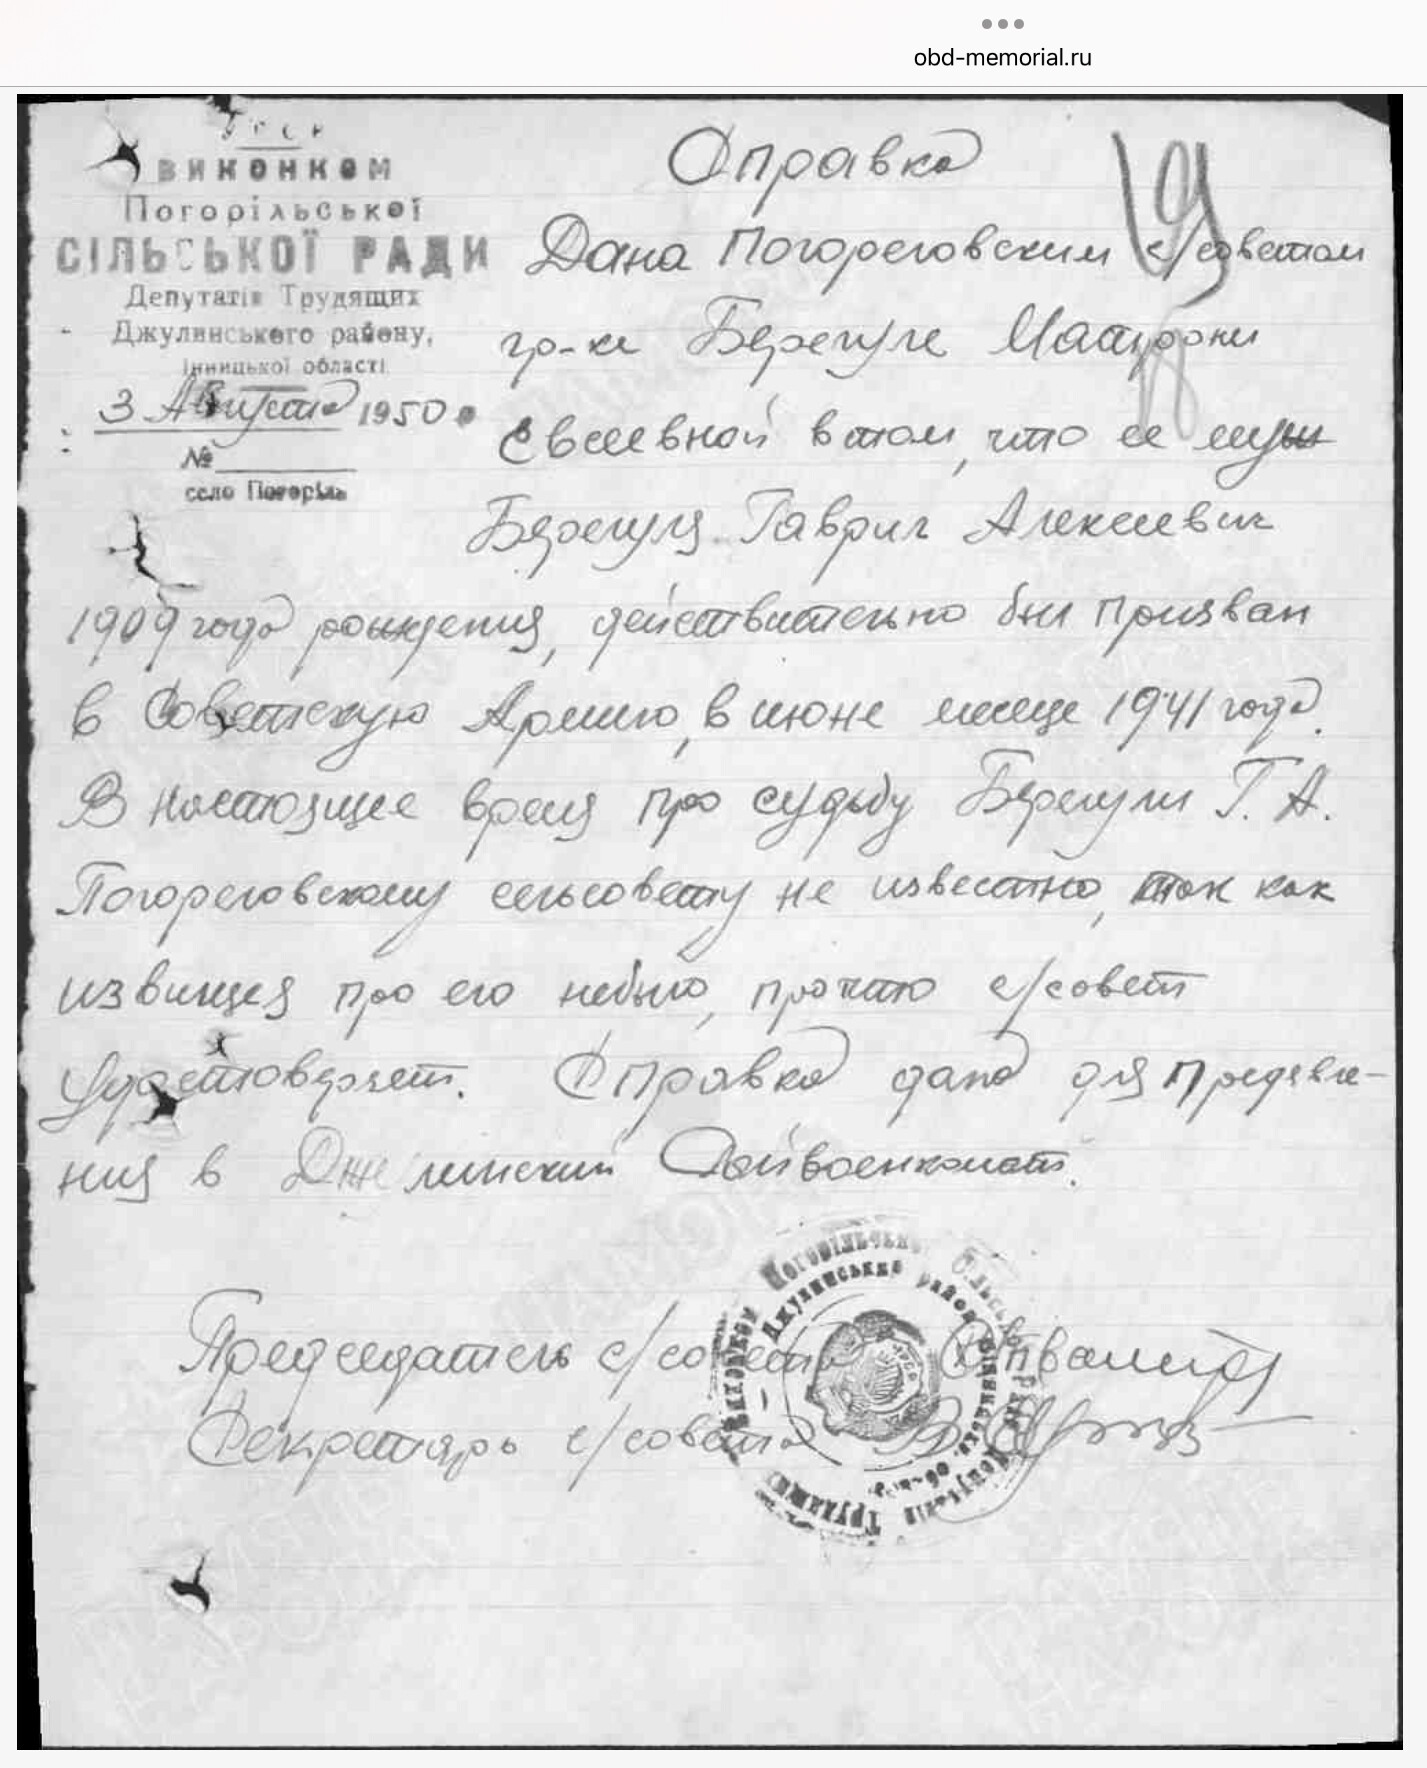 obd-memorial.ru
УРСР
ВИКОНКОМ
Погорільської
СІЛЬСЬКОЇ РАДИ
Депутатів Трудящих
Джулинського району,
інницької області
3 Августа 1950
№
село Погоріла
Справка
19
Дана Погореловским с/советом
гр-ке Берегуле Матроны
Евсеевной в том, что ее муж
Берегуля Гаврил Алексеевич
1909 года рождения, действительно был призван
в Советскую Армию, в июне месяце 1941 года.
В настоящее время про судьбу Берегули Г. А.
Погореловскому сельсовету не известно, так как
извищея про его небыло, про что с/совет
удостоверяет. Справка дана для предявле-
ния в Джулинский Райвоенкомат.
Председатель с/совета
Секретарь с/совета
Виконком Погорільської Сільської Ради Депутатів Трудящих
Джулинського району Вінницької обл.